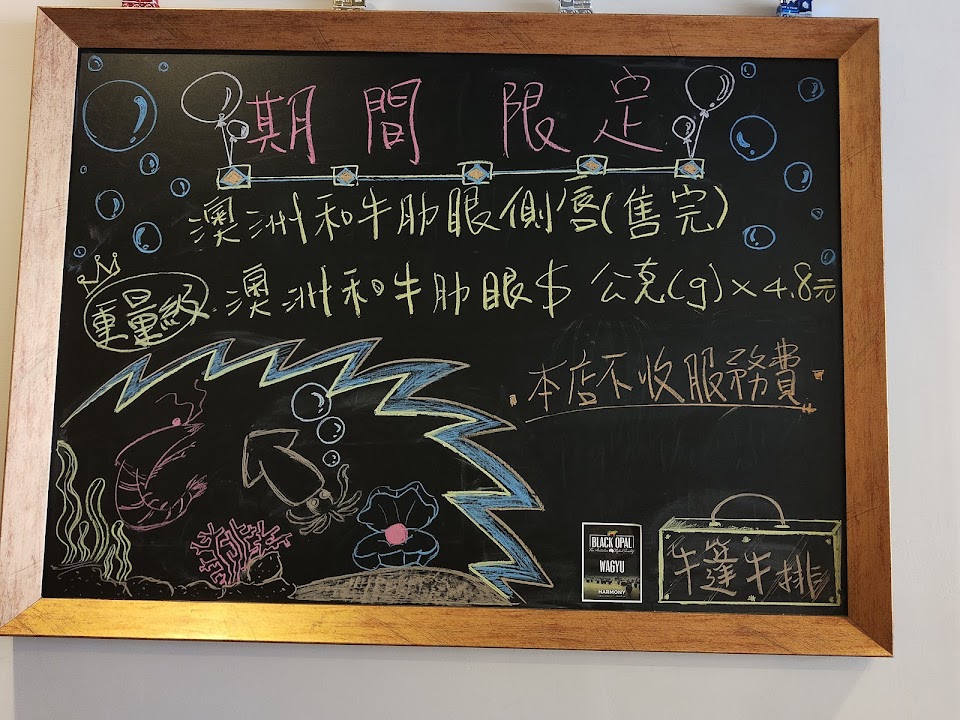 期間限定
澳洲和牛肋眼側唇(售完)
重量級 澳洲和牛肋眼$ 公克(g)×4.8元
本店不收服務費
BLACK OPAL
WAGYU
HARMONY
牛篷牛排